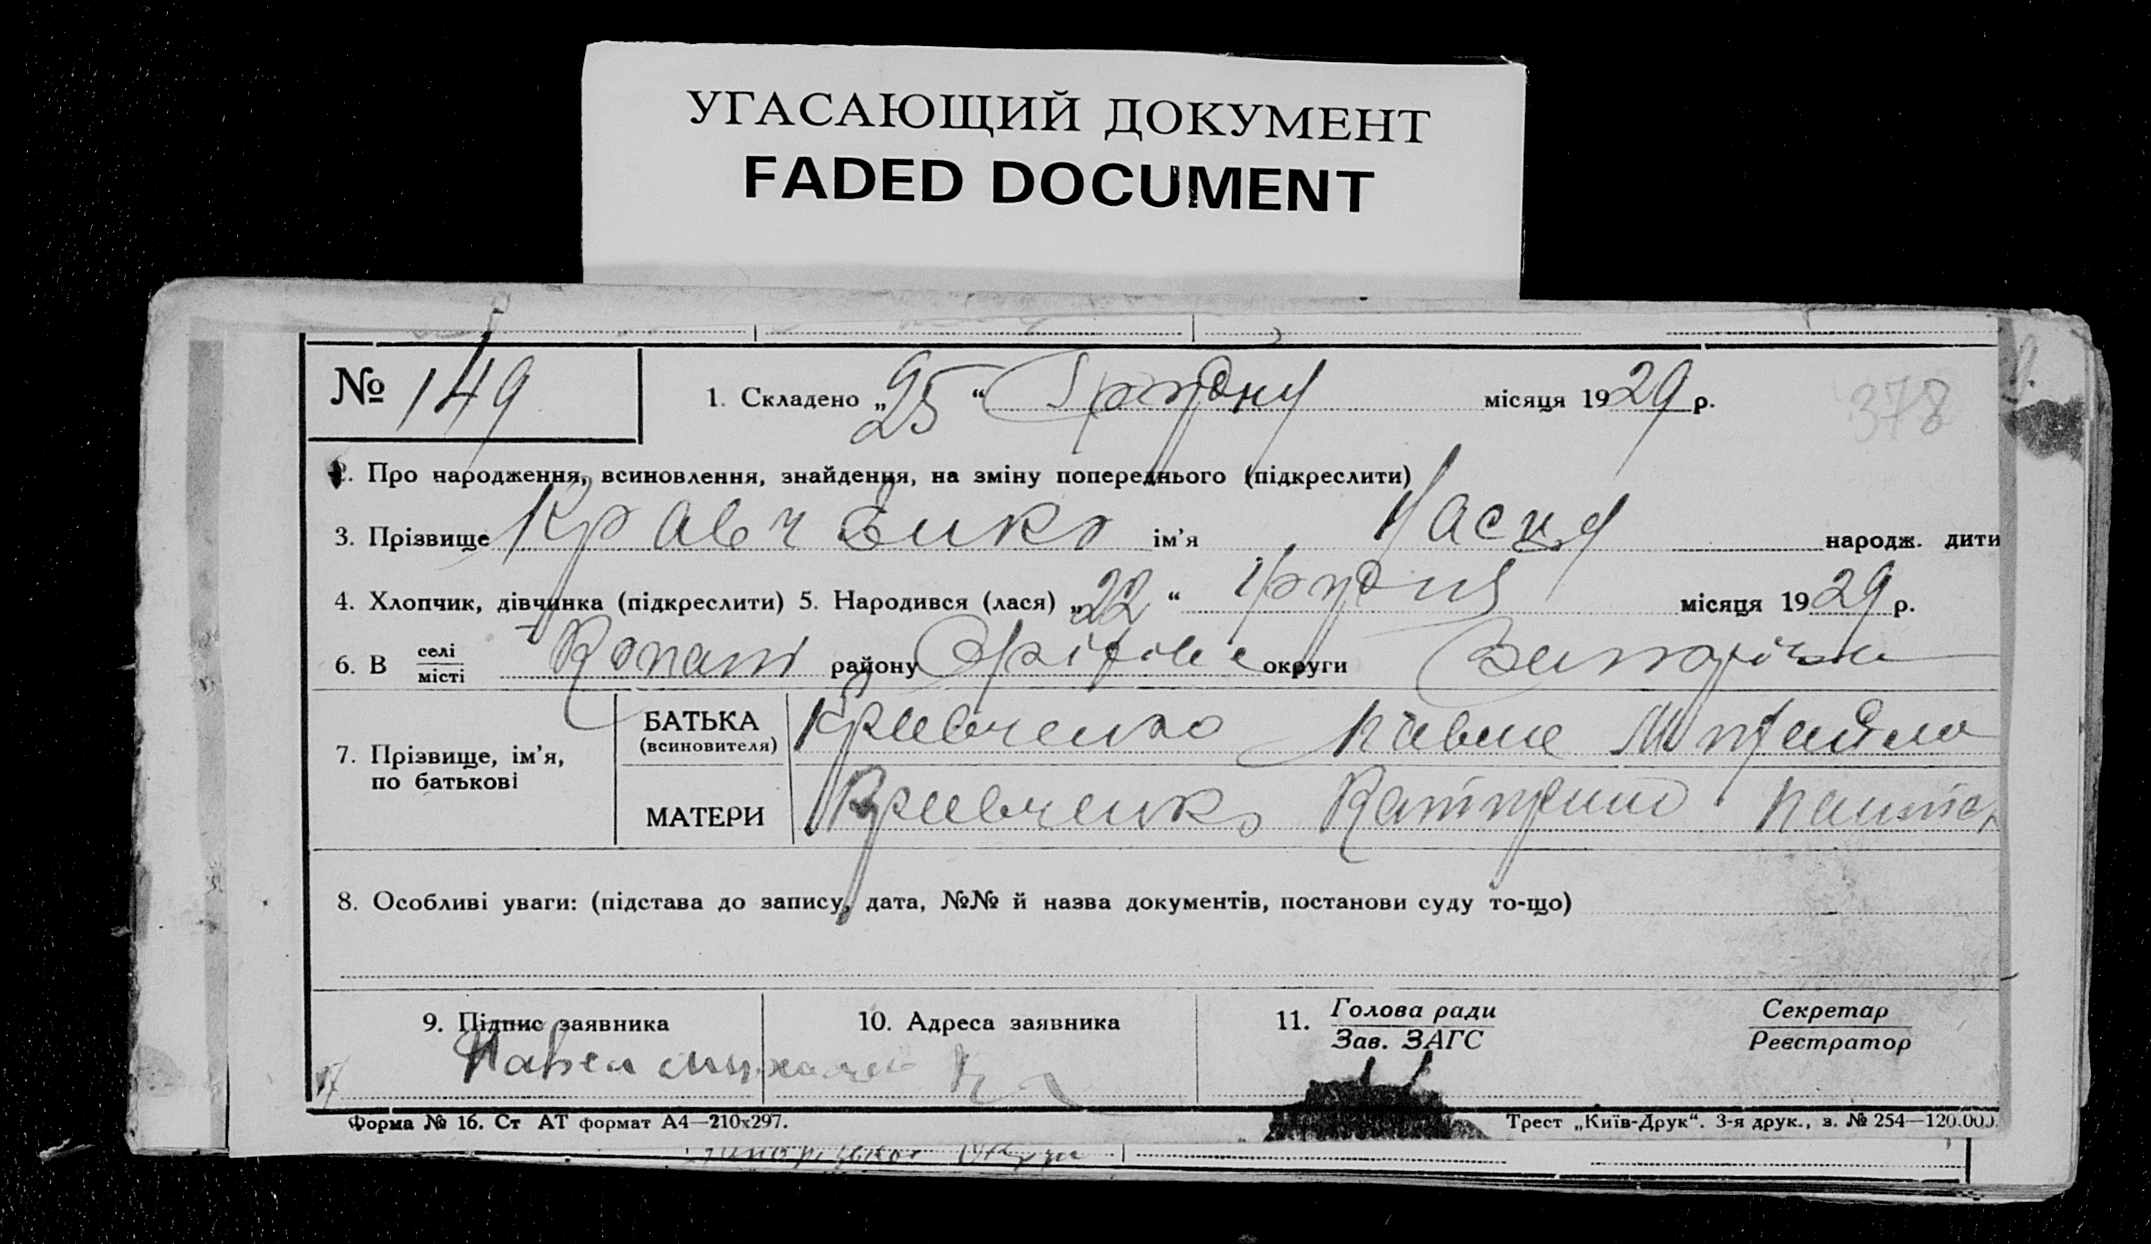 УГАСАЮЩИЙ ДОКУМЕНТ
FADED DOCUMENT
№ 149 1. Складено „25“ Грудну місяця 1929 р. 378
2. Про народження, всиновлення, знайдення, на зміну попереднього (підкреслити)
3. Прізвище Кравченко ім'я народж. дити
4. Хлопчик, дівчинка (підкреслити) 5. Народився (лася) „22“ Грудня місяця 1929 р.
6. В селі
місті Копані району округи
7. Прізвище, ім'я,
по батькові
БАТЬКА
(всиновителя)
Кравченко Павло
МАТЕРИ Кравченко
8. Особливі уваги: (підстава до запису, дата, №№ й назва документів, постанови суду то-що)
9. Підпис заявника 10. Адреса заявника 11. Голова ради
Зав. ЗАГС
Секретар
Реєстратор
Павел
Форма № 16. Ст АТ формат А4—210х297. Трест „Київ-Друк“. 3-я друк., з. № 254—120.000.